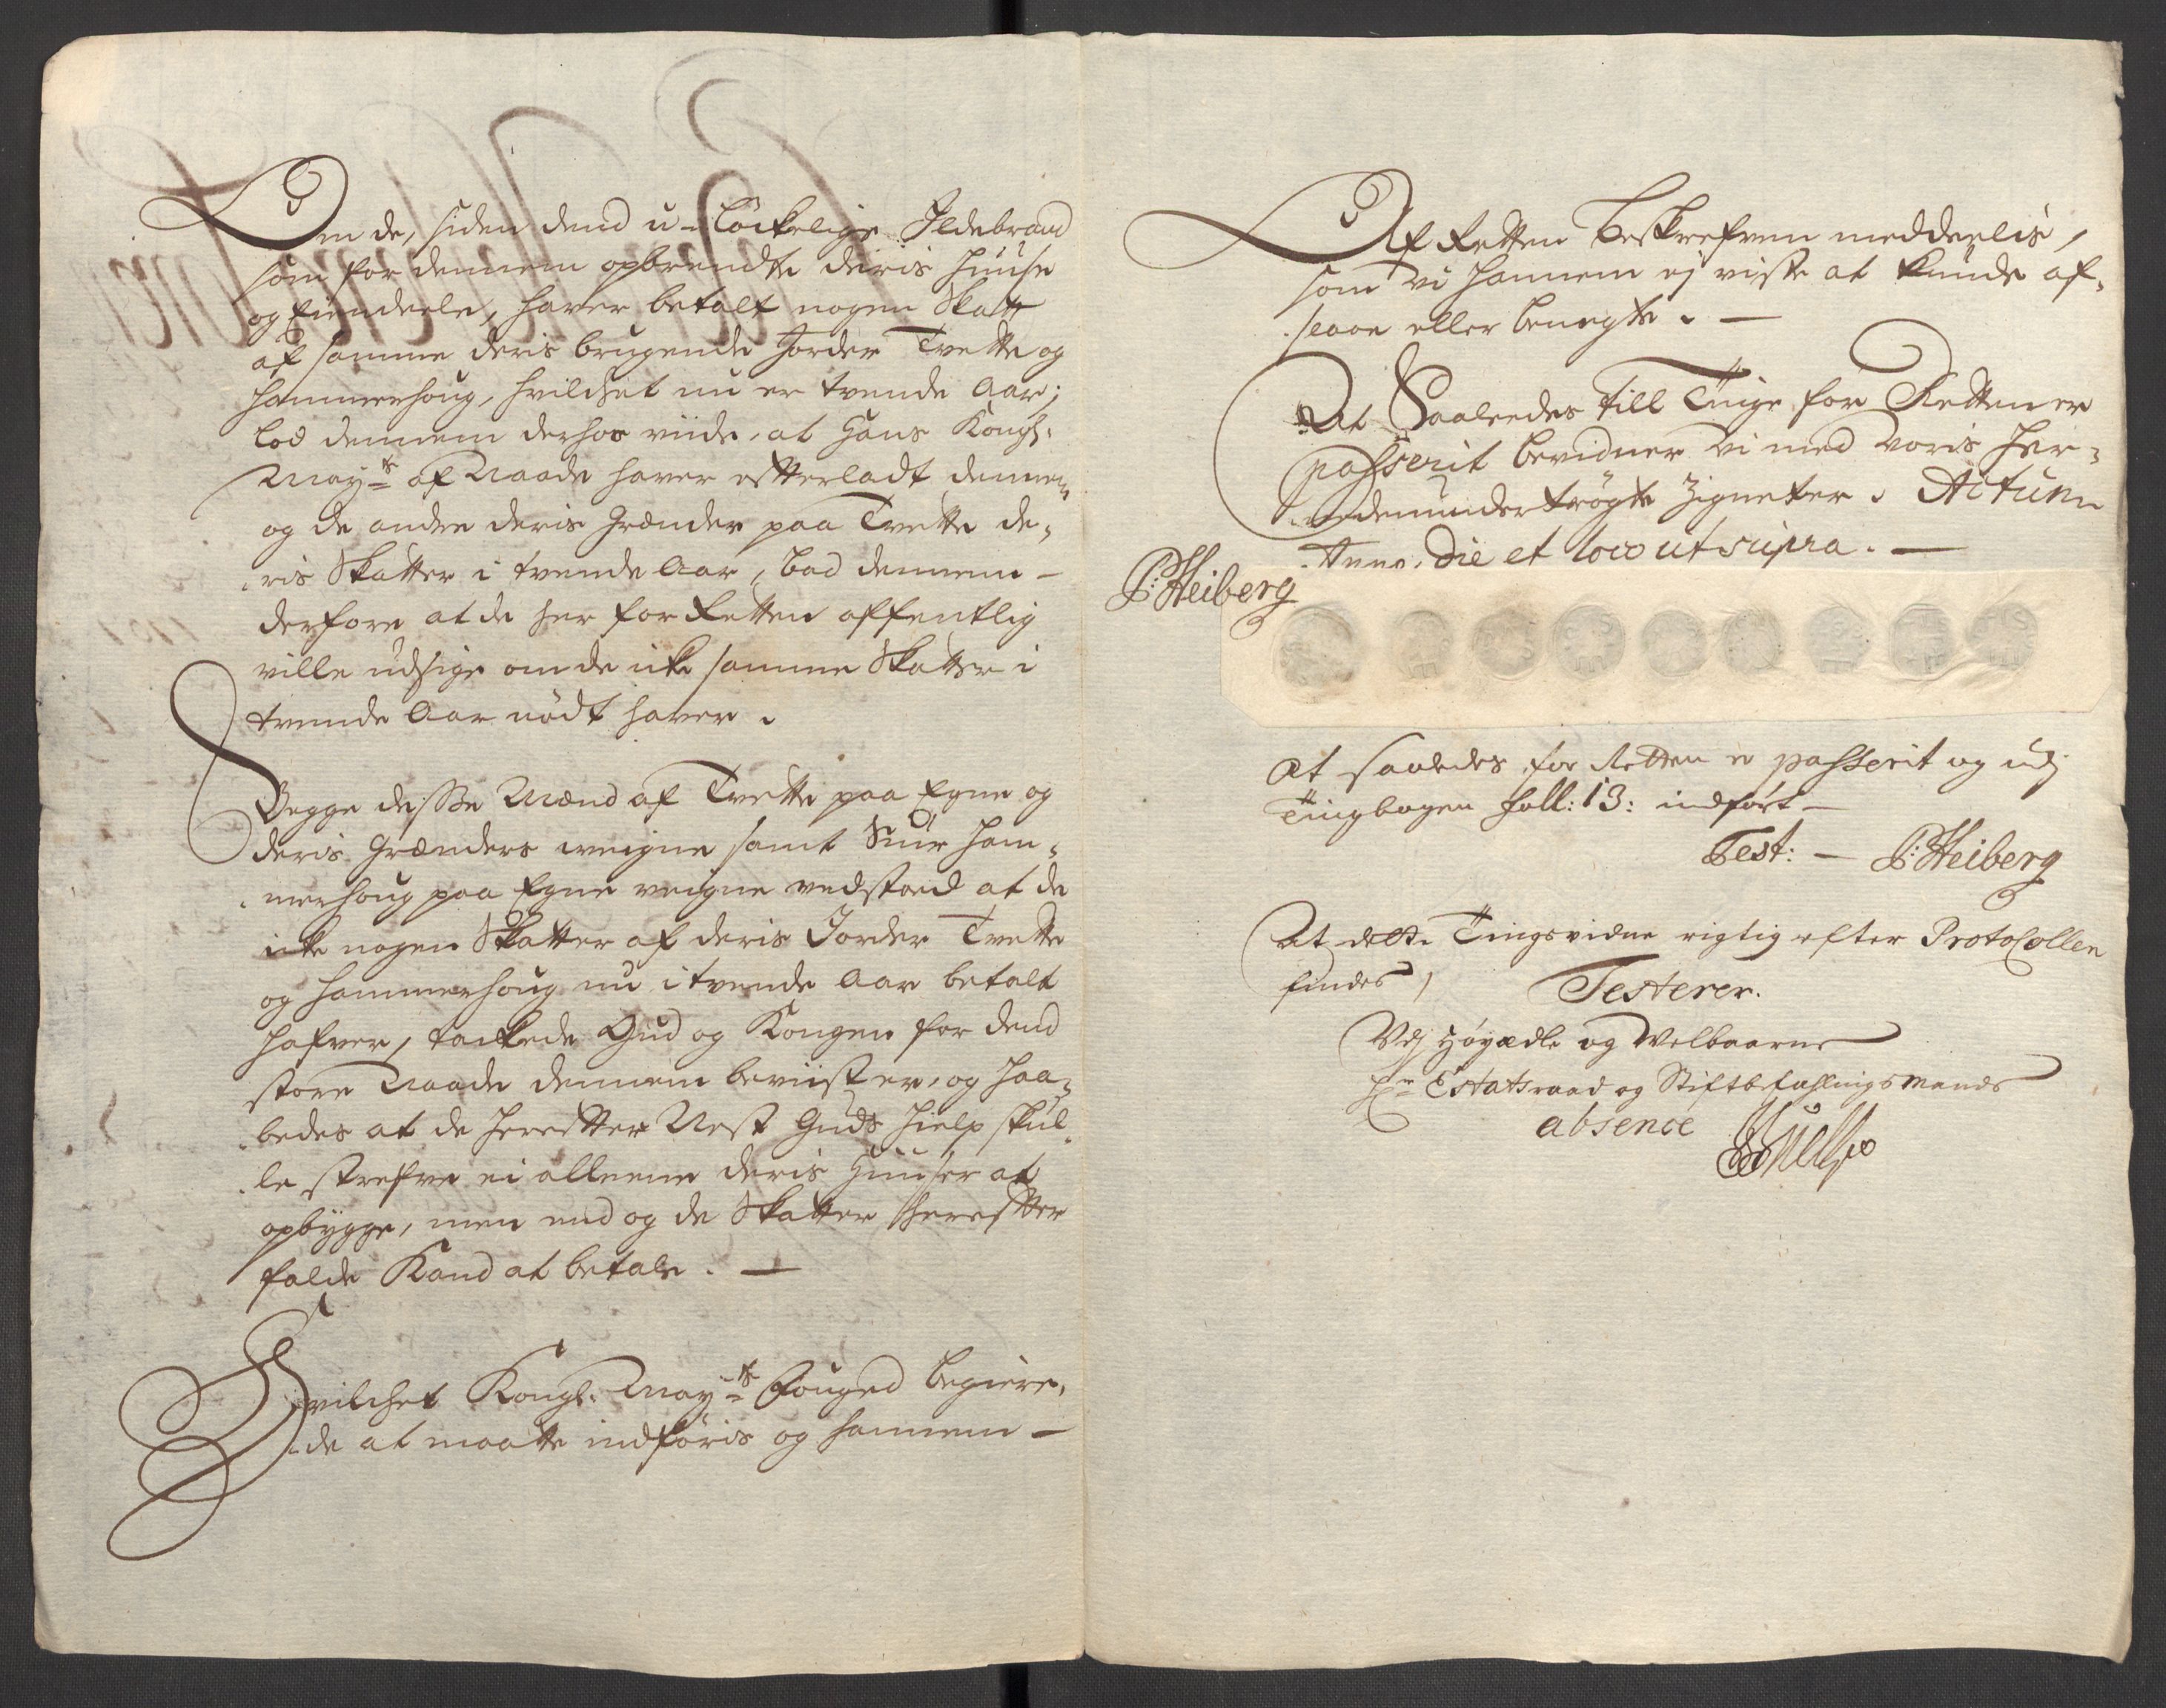 Om de, siden dend u-löckelige Ildebrand
som for dennem opbrendte deris huuse
og Eiendeele, haver betalt nogen Skatt
af samme deris brugende Jorder Tvette og
Hammershoug, hvilchet nu er tvende Aar;
lod dennem derhos viide, at Hans Kongl:
May:ts af Naade haver efterladt dennem
og de andre deris Grænder paa Tvette de-
ris Skatter i tvende Aar, bad dennem -
derfore at de her for Retten offentlig
ville udsige om de icke samme Skatter i
tvende Aar nödt haver.
Begge disse Mænd af Tvette paa Egne og
deris Grænders weigne samt Siur Ham-
mershoug paa Egne veigne vedstoed at de
icke nogen Skatter af deris Jorder Tvette
og Hammershoug nu i tvende Aar betalt
hafver, tackede Gud og Kongen for dend
store Naade dennem beviist er, og haa-
bedes at de herefter Nest Guds hielp skul-
le strefve ei alleene deris Huuser at
opbygge, men end og de Skatter herefter
falde Kand at betale. —
Hvilchet Kongl: May:ts Fouged begiere-
de at maatte indföris og hannem -
Af Retten beskrefven meddeelis,
som vi hannem ej viste at kunde af-
slaae eller benegte. —
At Saaleedes till Tinge for Retten er
passerit bevidner vi med voris her-
undertrögte Zigneter. Actum
Anno, Die et loco ut supra. —
P: Heiberg
At saaledes for Retten er passerit og udj
Tingbogen foll: 13: indfört —
Test: — P: Heiberg
At dette Tingsvidne rigtig efter Protocollen
findes, Testerer.
Udj Höyædle og Velbaarne
Hr: Estatsraad og Stiftbefahlingsmands
absence